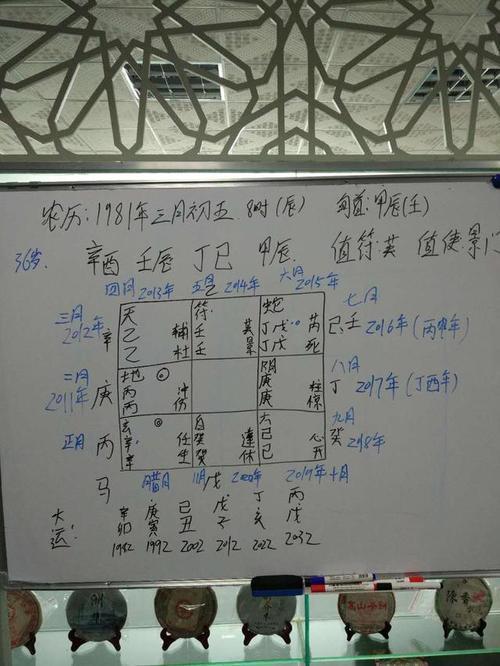 农历:1981年三月初五 8时(辰) 旬首:甲辰(壬)
36岁. 辛酉 壬辰 丁巳 甲辰. 值符:英 值使:景门
四月2013年 五月2014年 六月2015年
三月 2012年 辛
天 乙 乙 辅 杜
符 壬 壬 英 景
蛇 丁戊 丁戊 芮 死
七月 己壬 2016年(丙申年)
二月 2011年 庚
地 丙 丙 冲 伤
阴 庚 庚 柱 惊
八月 丁 2017年(丁酉年)
正月 丙
玄 辛 辛 任 生
白 癸 癸 蓬 休
六 己 己 心 开
九月 癸 2018年
马 腊月 11月 戊 2020年 2019年十月
大运: 辛卯 庚寅 己丑 戊子 丁亥 丙戌
1982 1992 2002 2012 2022 2032